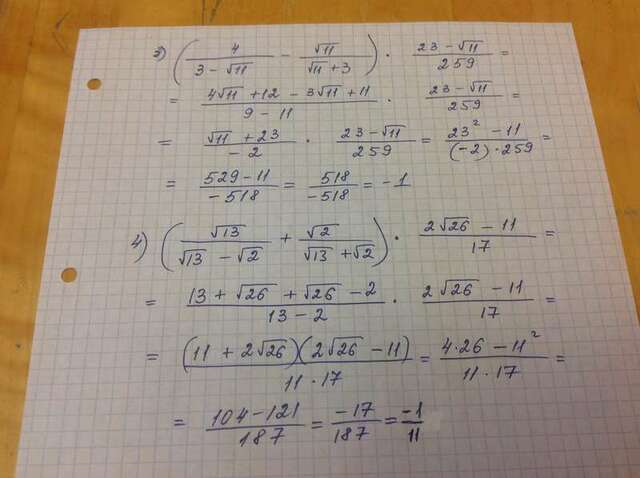 3) (4/(3 - √11) - √11/(√11 + 3)) · (23 - √11)/259 =
= (4√11 + 12 - 3√11 + 11)/(9 - 11) · (23 - √11)/259 =
= (√11 + 23)/(-2) · (23 - √11)/259 = (23² - 11)/((-2) · 259) =
= (529 - 11)/(-518) = 518/(-518) = -1
4) (√13/(√13 - √2) + √2/(√13 + √2)) · (2√26 - 11)/17 =
= (13 + √26 + √26 - 2)/(13 - 2) · (2√26 - 11)/17 =
= ((11 + 2√26)(2√26 - 11))/(11 · 17) = (4·26 - 11²)/(11 · 17) =
= (104 - 121)/187 = -17/187 = -1/11